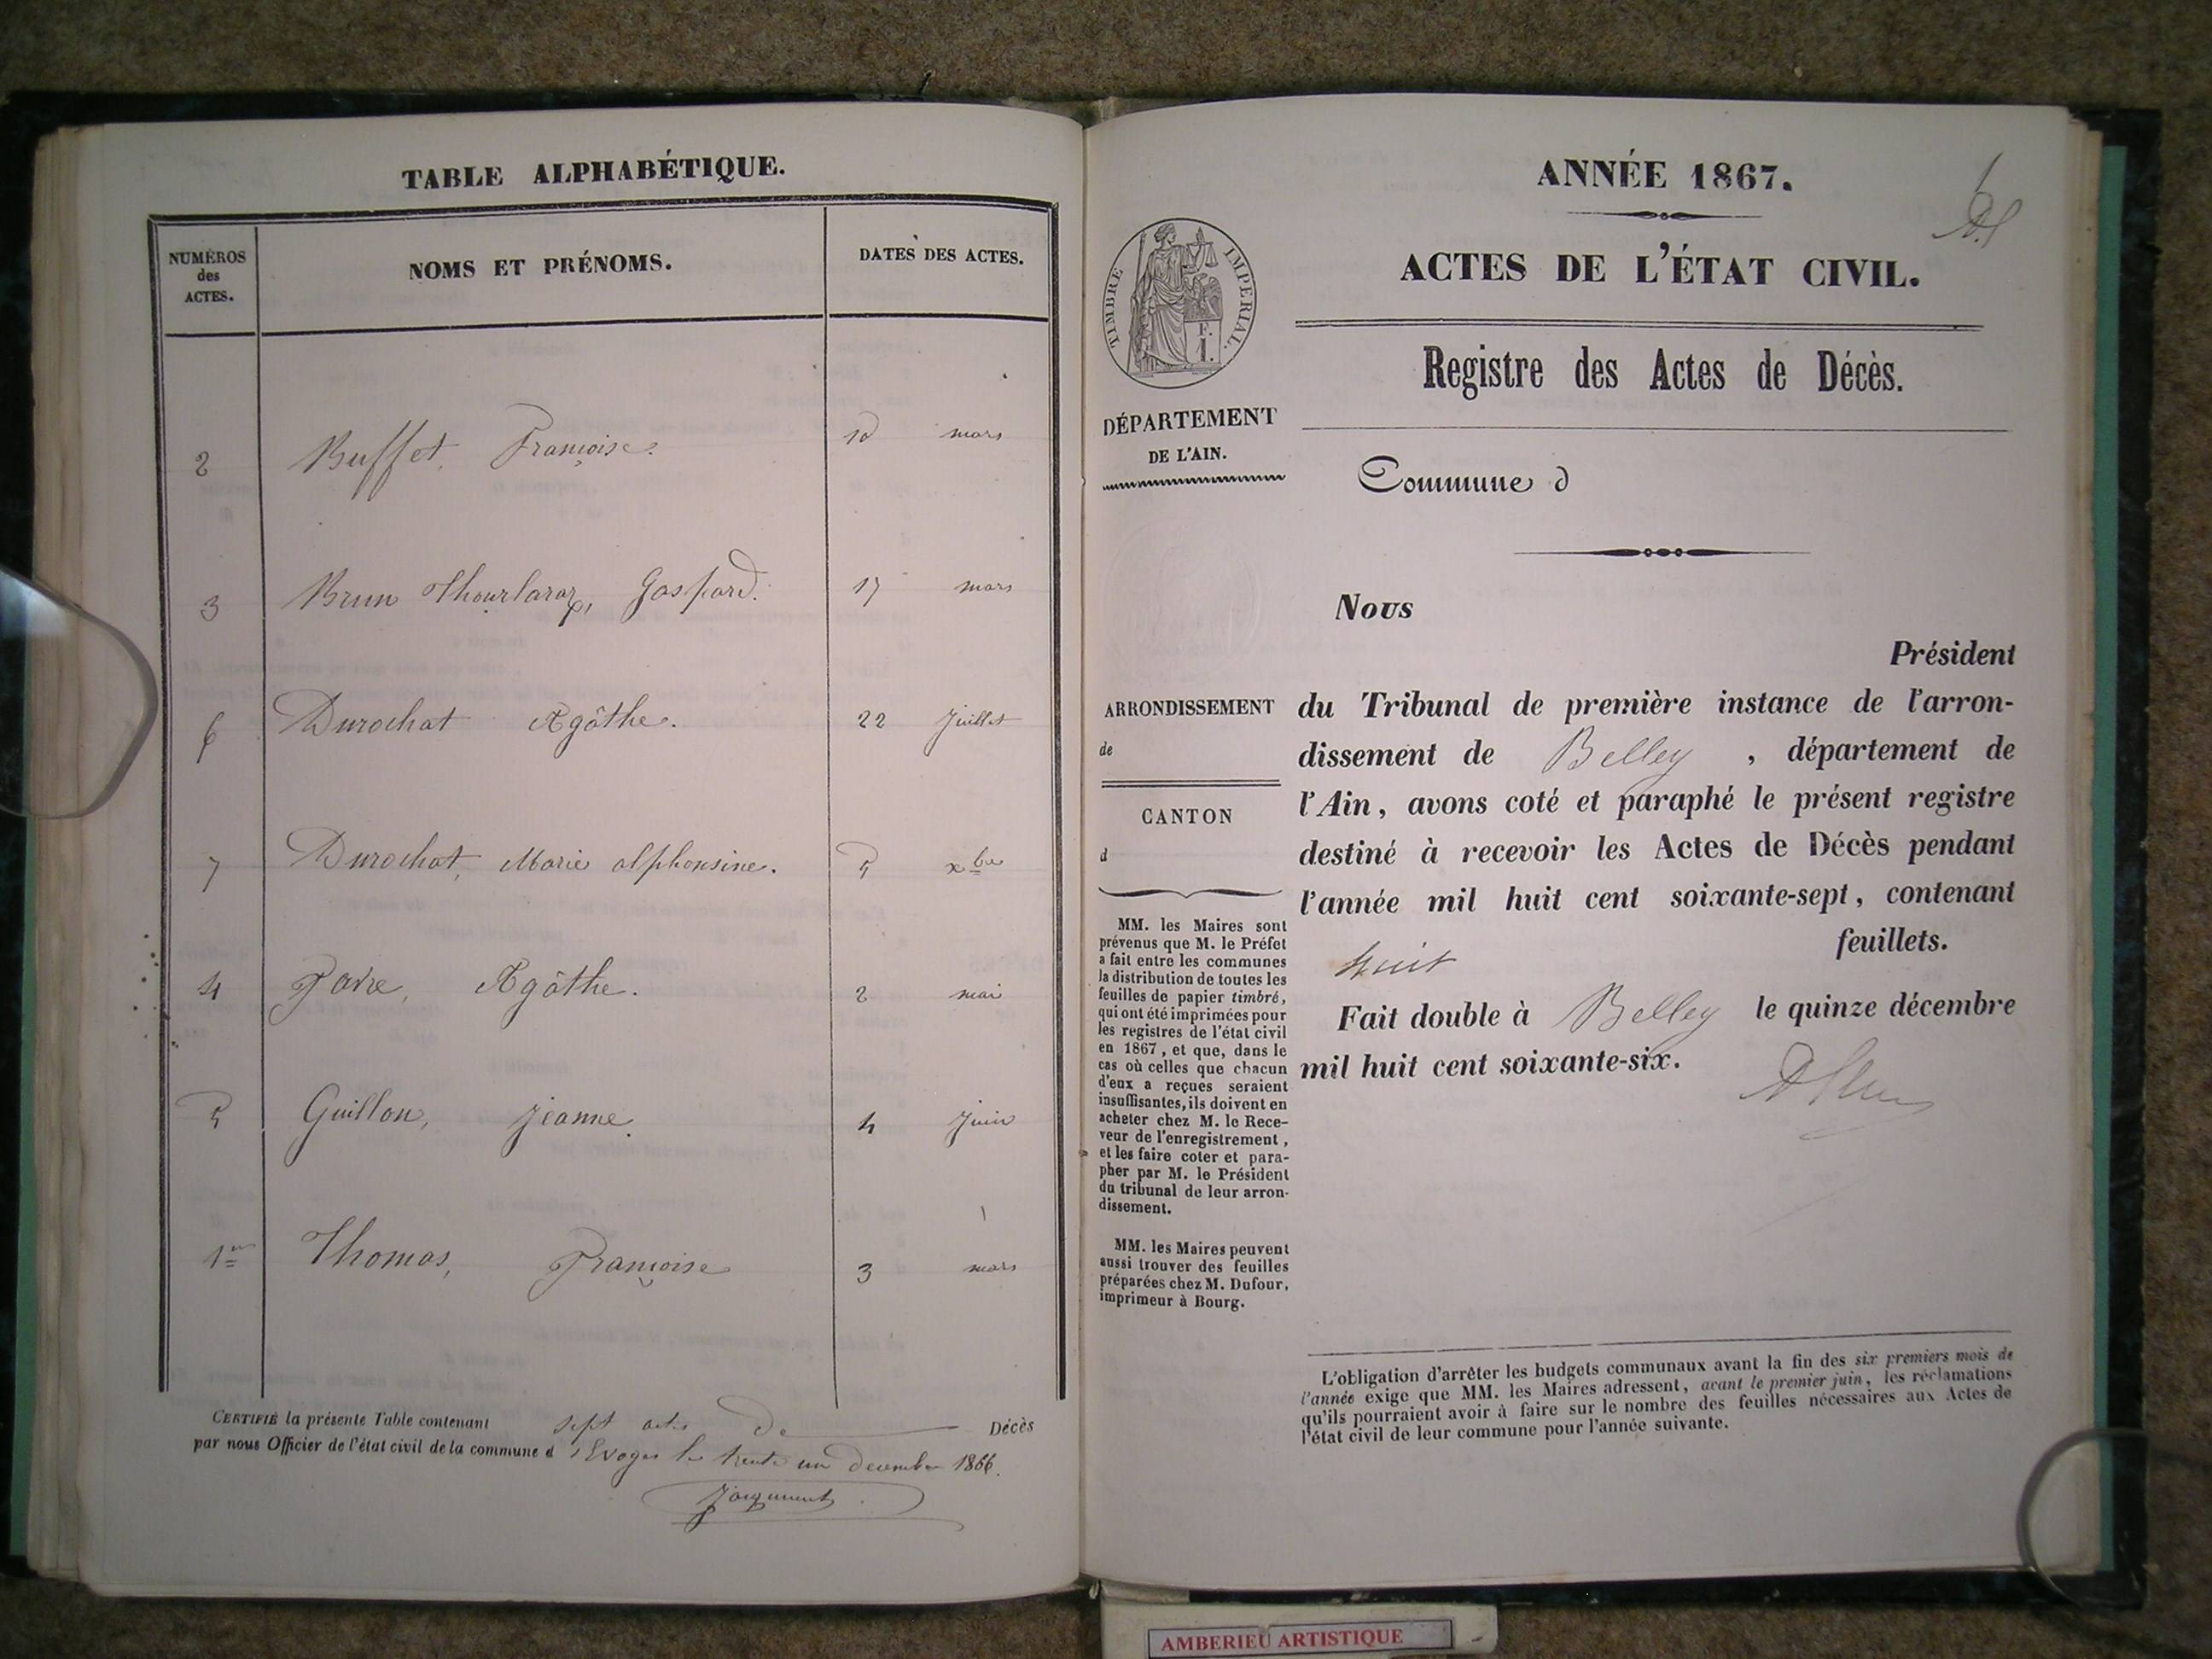 TABLE ALPHABÉTIQUE.
NUMÉROS des ACTES.
NOMS ET PRÉNOMS.
DATES DES ACTES.
2 Buffet, Françoise. 10 mars
3 Brun Gaspard. 17 mars
6 Durochat Agâthe. 22 Juillet
7 Durochat, Marie alphonsine. 5 xbre
4 Agâthe. 2 mai
5 Guillon, Jeanne. 4 Juin
1er Thomas, Françoise 3 mars
CERTIFIÉ la présente Table contenant sept actes de Décès
par nous Officier de l'état civil de la commune d'Evoges le trente un décembre 1866.
ANNÉE 1867.
ACTES DE L'ÉTAT CIVIL.
TIMBRE IMPERIAL.
F.
1.
Registre des Actes de Décès.
DÉPARTEMENT
DE L'AIN.
Commune d
Nous
Président
ARRONDISSEMENT
de
CANTON
d
du Tribunal de première instance de l'arron-
dissement de Belley, département de
l'Ain, avons coté et paraphé le présent registre
destiné à recevoir les Actes de Décès pendant
l'année mil huit cent soixante-sept, contenant
huit feuillets.
Fait double à Belley le quinze décembre
mil huit cent soixante-six.
MM. les Maires sont
prévenus que M. le Préfet
a fait entre les communes
la distribution de toutes les
feuilles de papier timbré,
qui ont été imprimées pour
les registres de l'état civil
en 1867, et que, dans le
cas où celles que chacun
d'eux a reçues seraient
insuffisantes, ils doivent en
acheter chez M. le Rece-
veur de l'enregistrement,
et les faire coter et para-
pher par M. le Président
du tribunal de leur arron-
dissement.
MM. les Maires peuvent
aussi trouver des feuilles
préparées chez M. Dufour,
imprimeur à Bourg.
L'obligation d'arrêter les budgets communaux avant la fin des six premiers mois de
l'année exige que MM. les Maires adressent, avant le premier juin, les réclamations
qu'ils pourraient avoir à faire sur le nombre des feuilles nécessaires aux Actes de
l'état civil de leur commune pour l'année suivante.
AMBERIEU ARTISTIQUE